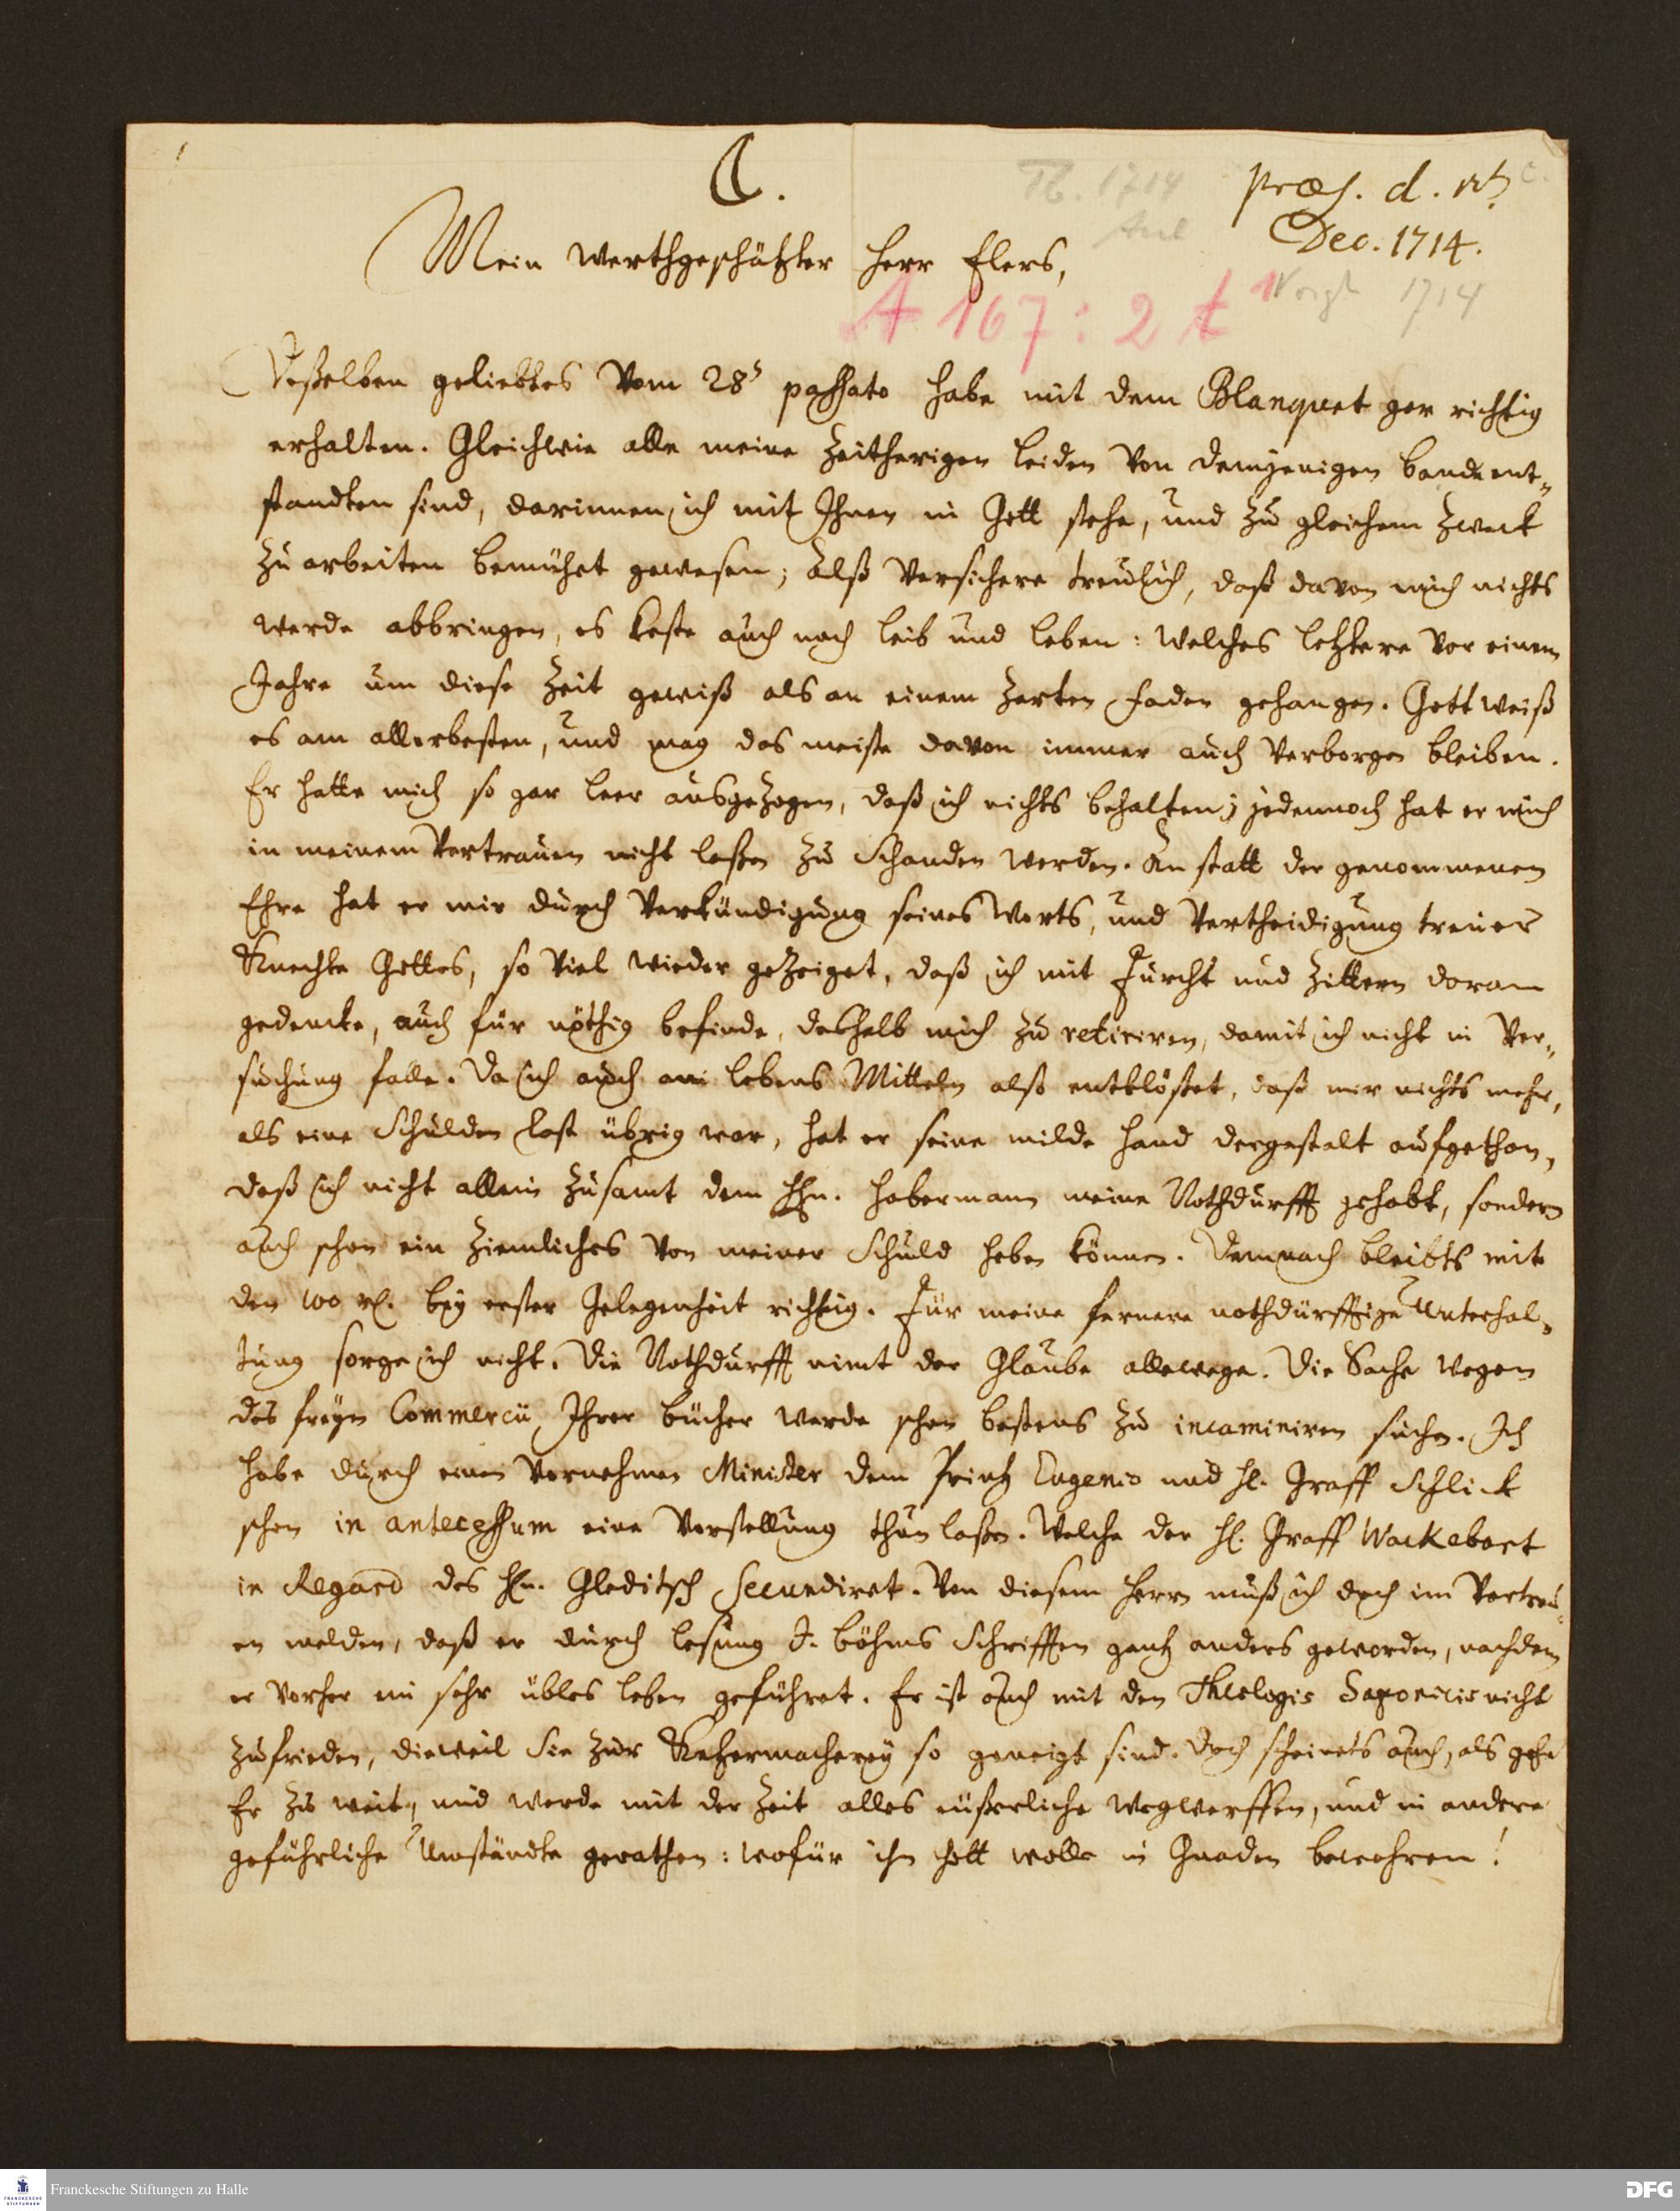 præs. d. 12t
Dec. 1714.
A.
1714
Mein werthgeschätzter Herr Elers,
A 167 : 2 t 1
Voigt 1714
Deßelben geliebtes vom 28t passato habe mit dem Blanquet gar richtig
erhalten. Gleichwie alle meine zeitherigen Leiden von demjenigen Bande ent-
standten sind, darinnen ich mit Ihnen in Gott stehe, und zu gleichem Zweck
zu arbeiten bemühet gewesen; Alß versichere treulich, daß davon mich nichts
werde abbringen, es koste auch noch Leib und Leben: welches letztere vor einem
Jahre um diese Zeit gewiß als an einem zarten Faden gehangen. Gott weiß
es am allerbesten, und mag das meiste davon immer auch verborgen bleiben.
Er hatte mich so gar leer ausgezogen, daß ich nichts behalten; jedennoch hat er mich
in meinem Vertrauen nicht laßen zu Schanden werden. An statt der genommenen
Ehre hat er mir durch Verkündigung seines Worts, und Vertheidigung treuer
Knechte Gottes, so viel wieder gezeiget, daß ich mit Furcht und Zittern daran
gedencke, auch für nöthig befinde, deßhalb mich zu retiriren, damit ich nicht in Ver-
suchung falle. Da ich auch an Lebens Mitteln alß entblößet, daß mir nichts mehr,
als eine Schulden Last übrig war, hat er seine milde Hand dergestalt aufgethan,
daß ich nicht allein zusamt dem Hhn. Habermann meine Nothdurfft gehabt, sondern
auch schon ein ziemliches von meiner Schuld heben können. Demnach bleibts mit
den 100 rl. bey erster Gelegenheit richtig. Für meine fernere nothdürfftige Unterhal-
tung sorge ich nicht. Die Nothdurfft nimt der Glaube allewege. Die Sache wegen
des freyen Commercii Ihrer Bücher werde schon bestens zu incaminiren suchen. Ich
habe durch einen vornehmen Minister dem Printz Eugenio und Hl. Graff Schlick
schon in antecessum eine Vorstellung thun laßen. Welche der Hl. Graff Wackebart
in Regard des Hln. Gleditsch secundiret. Von diesem Herrn muß ich doch im Vertrau-
en melden, daß er durch Lesung J. Böhms Schrifften gantz anders geworden, nachdem
er vorher ein sehr übles Leben geführet. Er ist auch mit den Theologis Saxonicis nicht
zufrieden, dieweil Sie zur Ketzermacherey so geneigt sind. Doch scheinets auch, als gehe
Er zu weit, und werde mit der Zeit alles eußerliche wegwerffen, und in andere
gefährliche Umständte gerathen: wofür ihn Gott wolle in Gnaden bewahren!
Franckesche Stiftungen zu Halle
DFG